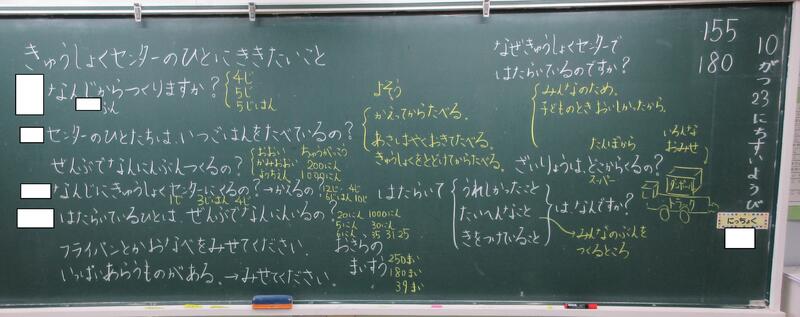 きゅうしょくセンターのひとにききたいこと
なんじからつくりますか?
ぷん
4じ
5じ
5じはん
センターのひとたちは、いつごはんをたべているの?
よそう
かえってからたべる。
あさはやくおきてたべる。
きゅうしょくをとどけてからたべる。
ぜんぶでなんにんぶんつくるの?
おおい
かみおおい
ようちえん
ちゅうがっこう
200にん
1000にん
なんじにきゅうしょくセンターにくるの?→かえるの?
1じ 3じはん 4じ
12じ・4じ
はたらいているひとは、ぜんぶでなんにんいるの?
20にん 1000にん
5にん 30にん
35 31 25
フライパンとかおなべをみせてください。
いっぱいあらうものがある。→みせてください。
おさらの
まいすう
250まい
180まい
39まい
なぜきゅうしょくセンターで
はたらいているのですか?
みんなのため。
子どものときおいしかったから。
ざいりょうは、どこからくるの?
たんぼから
スーパー
いろんな
おみせ
ダンボール
トラック
はたらいて
うれしかったこと
たいへんなこと
きをつけていること
は、なんですか?
→みんなのぶんを
つくるところ
155
180
10がつ23にちすいようび
にっちょく